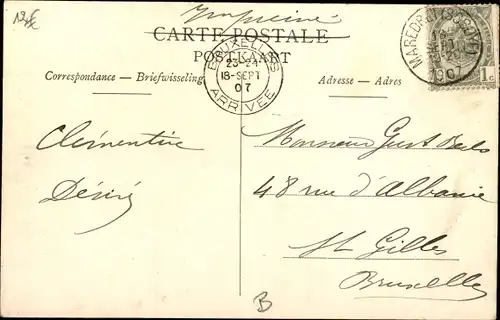 12€
Imprimé
CARTE POSTALE
POSTKAART
Correspondance — Briefwisseling
Adresse — Adres
BRUXELLES
23-24
18-SEPT
07
ARRIVÉE
1907
1c
Clémentine
Désiré
Monsieur Gust
48 rue d'Albanie
St Gilles
Bruxelles
B